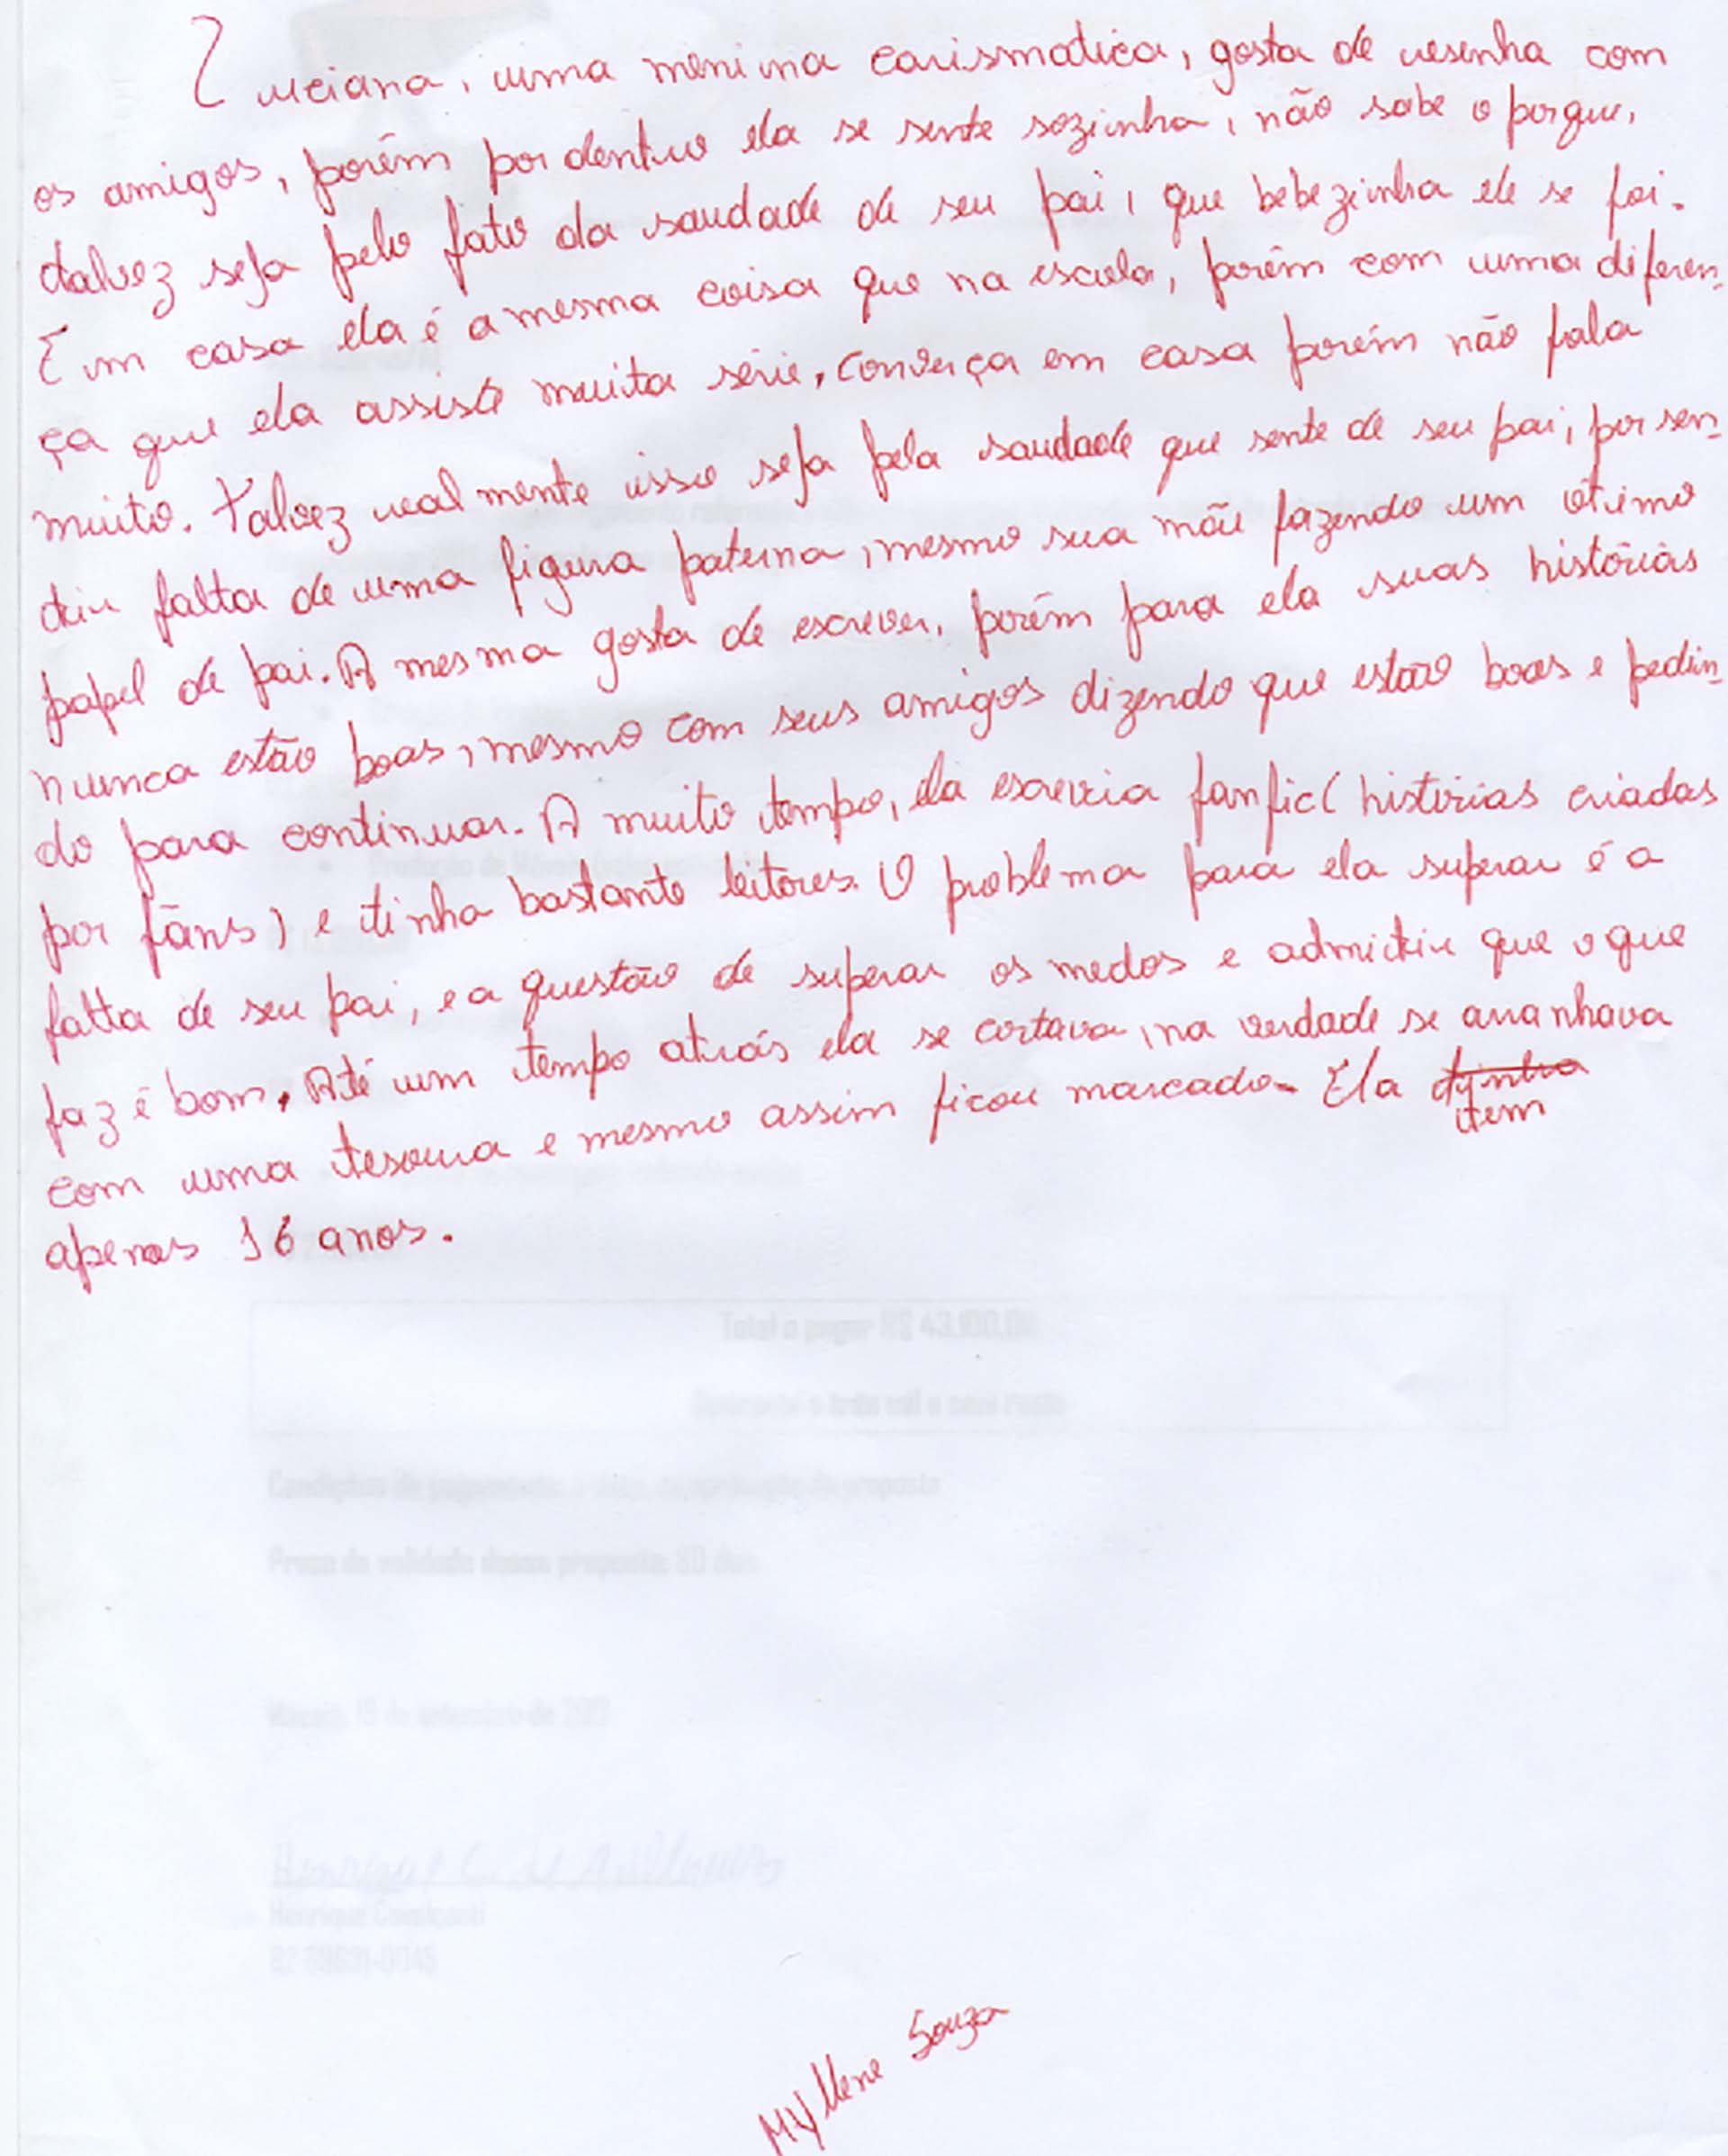 Luciana, uma menina carismatica, gosta de resenha com
os amigos, porém por dentro ela se sente sozinha, não sabe o porque,
talvez seja pelo fato da saudade de seu pai, que bebezinha ele se foi.
Em casa ela é a mesma coisa que na escola, porém com uma diferen-
ça que ela assiste muita série, converça em casa porém não fala
muito. Talvez realmente isso seja pela saudade que sente de seu pai, por sen-
tir falta de uma figura paterna, mesmo sua mãe fazendo um ótimo
papel de pai. A mesma gosta de escrever, porém para ela suas histórias
nunca estão boas, mesmo com seus amigos dizendo que estão boas e pedin-
do para continuar. A muito tempo, ela escrevia fanfic( histórias criadas
por fãns) e tinha bastante leitores. O problema para ela superar é a
falta de seu pai, e a questão de superar os medos e admitir que o que
faz é bom. Até um tempo atrás ela se cortava, na verdade se arranhava
com uma tesoura e mesmo assim ficou marcado. Ela tinha
tem
apenas 16 anos.
Total a pagar R$ 43.100,00
Condições de pagamento:
Prazo de validade dessa proposta: 60 dias
Maceió, 19 de setembro de
Henrique Cavalcanti
Myllene Souza